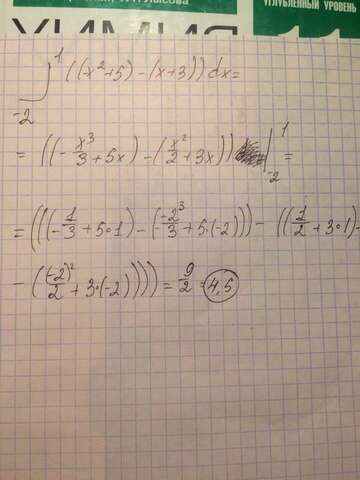 УГЛУБЛЕННЫЙ УРОВЕНЬ
ХИМИЯ 11
∫₋₂¹ ((-x²+5)-(x+3))dx=
= ((-x³/3+5x)-(x²/2+3x))|₋₂¹ =
=(((-1/3+5·1)-(-(-2)³/3+5·(-2)))-((1/2+3·1)-
-((-2)²/2+3·(-2))))=9/2=4,5